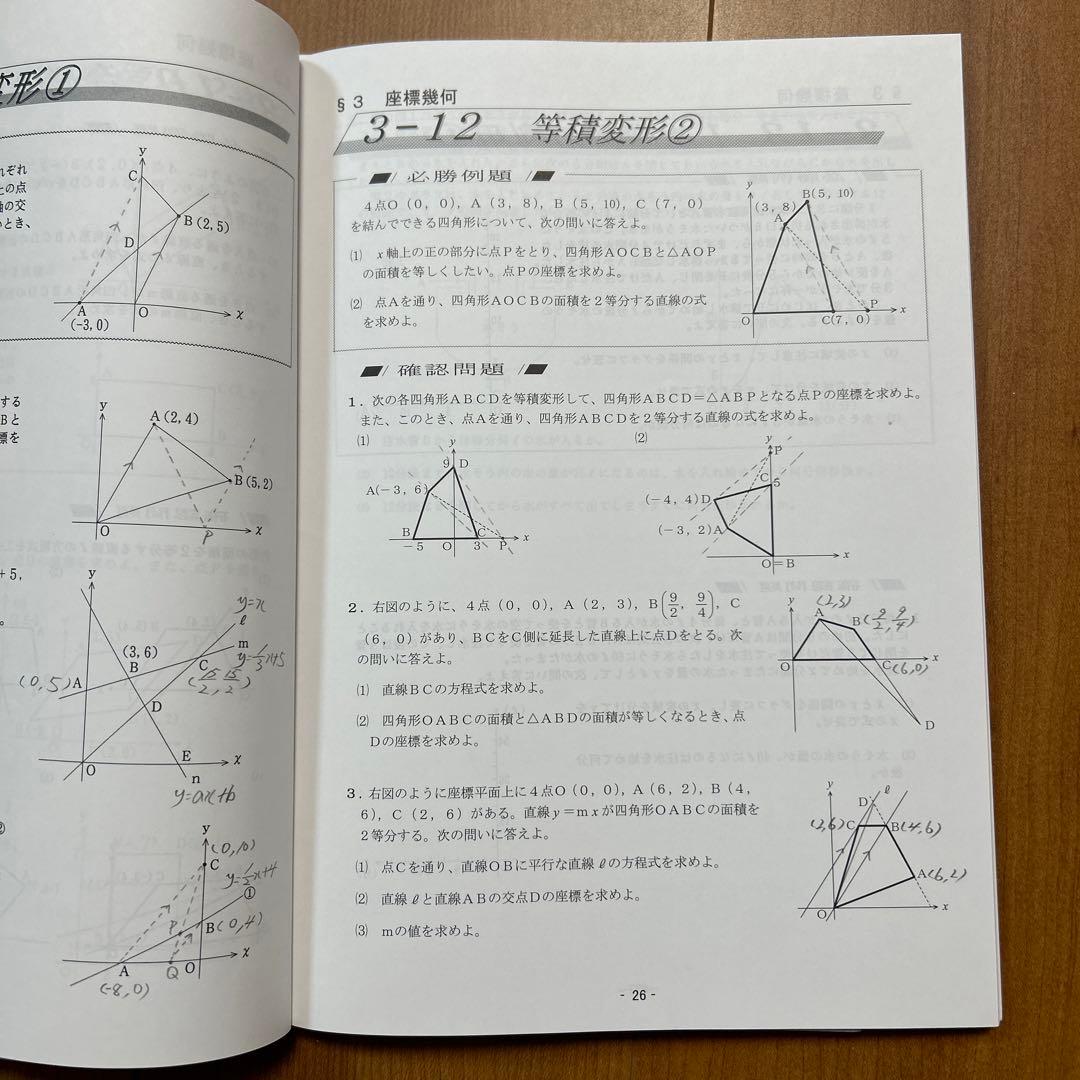 変形①
y
C
B(2,5)
D
A
(-3,0)
O
x
れぞれ
との点
軸の交
いとき、
する
Bと
標を
y
A(2,4)
B(5,2)
O
P
x
+5,
y
y=x
ℓ
m
y=1/3x+5
(3,6)
B
C
(15/2, 15/2)
(0,5)
A
D
E
O
n
x
y=ax+b
②
y
(0,10)
C
y=1/2x+4
①
P
B(0,4)
A
Q
O
x
(-8,0)
§3 座標幾何
3-12 等積変形②
必勝例題
4点O(0, 0)、A(3, 8)、B(5, 10)、C(7, 0)
を結んでできる四角形について、次の問いに答えよ。
(1) x軸上の正の部分に点Pをとり、四角形AOCBと△AOP
の面積を等しくしたい。点Pの座標を求めよ。
(2) 点Aを通り、四角形AOCBの面積を2等分する直線の式
を求めよ。
y
B(5, 10)
(3, 8)
A
O
C(7, 0)
P
x
確認問題
1. 次の各四角形ABCDを等積変形して、四角形ABCD=△ABPとなる点Pの座標を求めよ。
また、このとき、点Aを通り、四角形ABCDを2等分する直線の式を求めよ。
(1)
y
9
D
A(-3, 6)
B
-5
O
C
3
P
x
(2)
y
P
C
5
(-4, 4)D
(-3, 2)A
O=B
x
2. 右図のように、4点(0, 0)、A(2, 3)、B(9/2, 9/4)、C
(6, 0)があり、BCをC側に延長した直線上に点Dをとる。次
の問いに答えよ。
(1) 直線BCの方程式を求めよ。
(2) 四角形OABCの面積と△ABDの面積が等しくなるとき、点
Dの座標を求めよ。
y
(2,3)
A
B
(9/2, 9/4)
O
C
(6,0)
x
D
3. 右図のように座標平面上に4点O(0, 0)、A(6, 2)、B(4,
6)、C(2, 6)がある。直線y=mxが四角形OABCの面積を
2等分する。次の問いに答えよ。
(1) 点Cを通り、直線OBに平行な直線ℓの方程式を求めよ。
(2) 直線ℓと直線ABの交点Dの座標を求めよ。
(3) mの値を求めよ。
y
D
ℓ
(2,6)
C
B(4,6)
A(6,2)
O
x
- 26 -